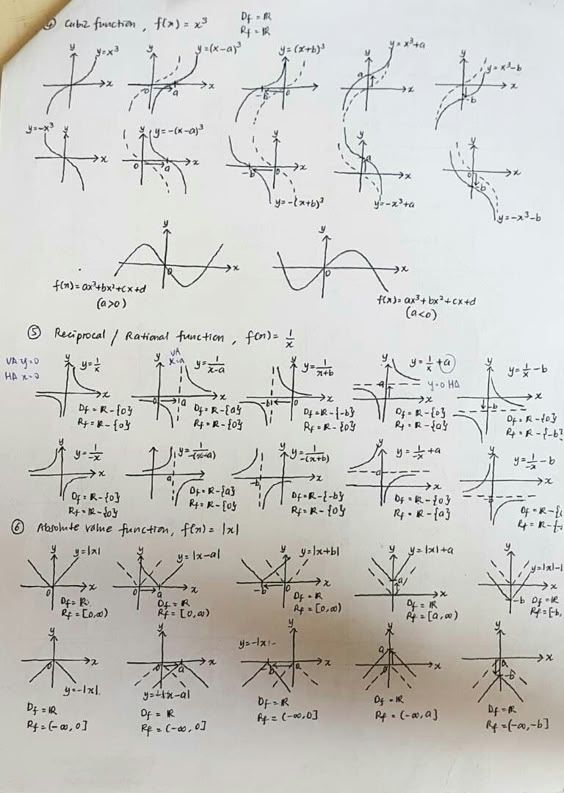 ④ Cubic function, f(x) = x³ Df = ℝ
Rf = ℝ
y=x³ y=(x-a)³ y=(x+b)³ y=x³+a y=x³-b
y=-x³ y=-(x-a)³ y=-(x+b)³ y=-x³+a y=-x³-b
f(x) = ax³+bx²+cx+d
(a>0)
f(x) = ax³+bx²+cx+d
(a<0)
⑤ Reciprocal / Rational function, f(x) = 1/x
VA y=0
HA x=0
y=1/x
Df = ℝ-{0}
Rf = ℝ-{0}
VA
x=a
y=1/(x-a)
Df = ℝ-{a}
Rf = ℝ-{0}
y=1/(x+b)
Df = ℝ-{-b}
Rf = ℝ-{0}
y=1/x+a
y=0 HA
Df = ℝ-{0}
Rf = ℝ-{a}
y=1/x-b
Df = ℝ-{0}
Rf = ℝ-{-b}
y=1/-x
Df = ℝ-{0}
Rf = ℝ-{0}
y=1/-(x+a)
Df = ℝ-{a}
Rf = ℝ-{0}
y=1/-(x+b)
Df = ℝ-{-b}
Rf = ℝ-{0}
y=1/-x+a
Df = ℝ-{0}
Rf = ℝ-{a}
y=1/-x-b
Df = ℝ-{
Rf = ℝ-{-
⑥ Absolute value function, f(x) = |x|
y=|x|
Df = ℝ
Rf = [0,∞)
y=|x-a|
Df = ℝ
Rf = [0,∞)
y=|x+b|
Df = ℝ
Rf = [0,∞)
y=|x|+a
Df = ℝ
Rf = [a,∞)
y=|x|-
Df = ℝ
Rf = [-b,
y=-|x|
Df = ℝ
Rf = (-∞,0]
y=-|x-a|
Df = ℝ
Rf = (-∞,0]
y=-|x+
Df = ℝ
Rf = (-∞,0]
Df = ℝ
Rf = (-∞,a]
Df = ℝ
Rf = (-∞,-b]